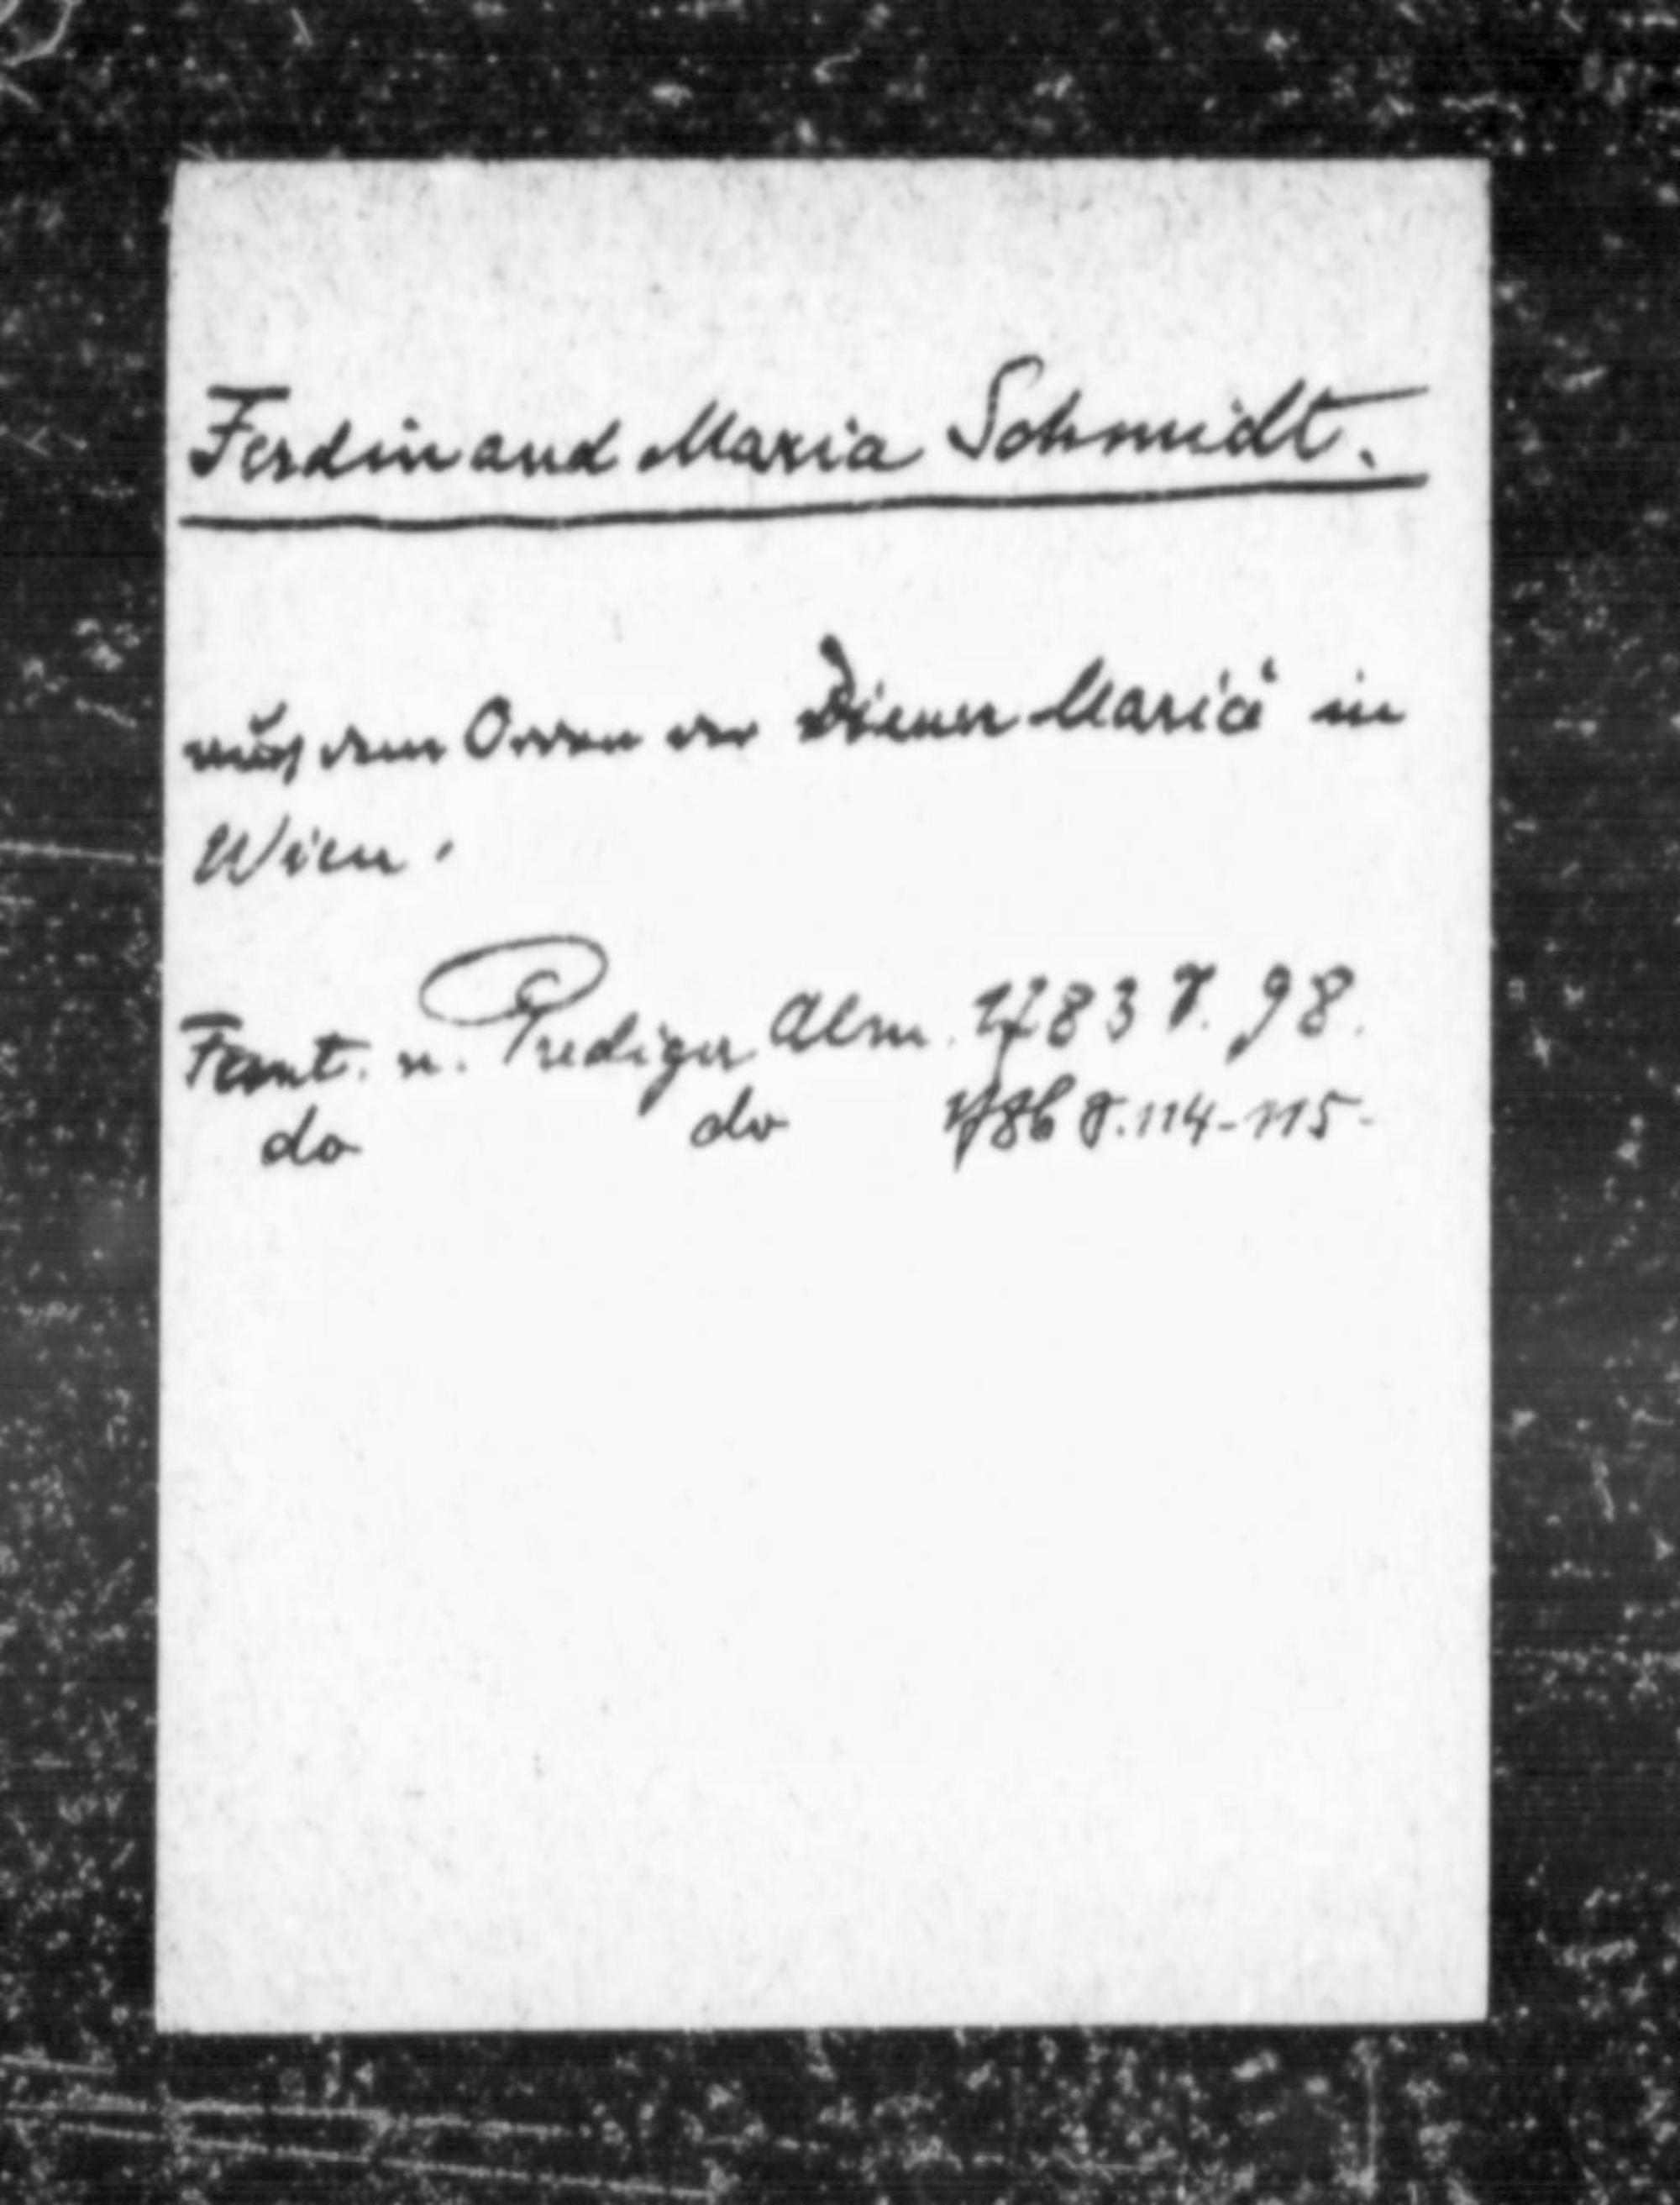 Ferdinand Maria Schmidt.
aus dem Orden der Diener Mariä in
Wien.
Famt. u. Prediger Alm. 1783 S. 98.
do do 1786 S. 114-115-